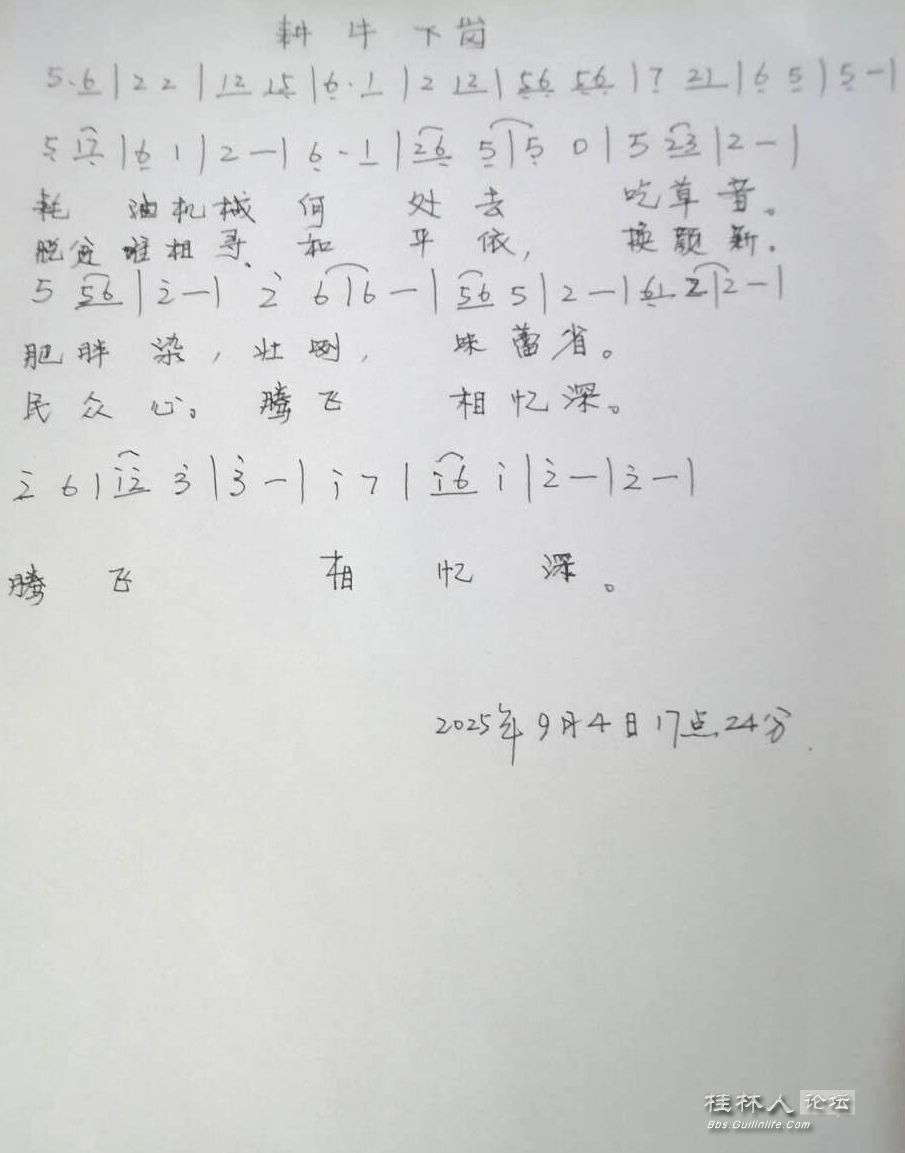 耕牛下岗
5·6|22|12 15|6·1|2 12|56 56|7 21|6 5|5-|
5 17|61|2-|6·1|26 5|5 0|5 23|2-|
耗油机械何处去 吃草音。
脱贫谁相寻、和平依，换颜新。
5 56|2-|2 6|6-|56 5|2-|61 2|2-|
肥胖染，壮 ，味蕾省。
民众心。腾飞 相忆深。
2 6|12 3|3-|17|16 1|2-|2-|
腾飞 相忆深。
2025年9月4日17点24分
桂林人论坛
Bbs.Guilinlife.Com